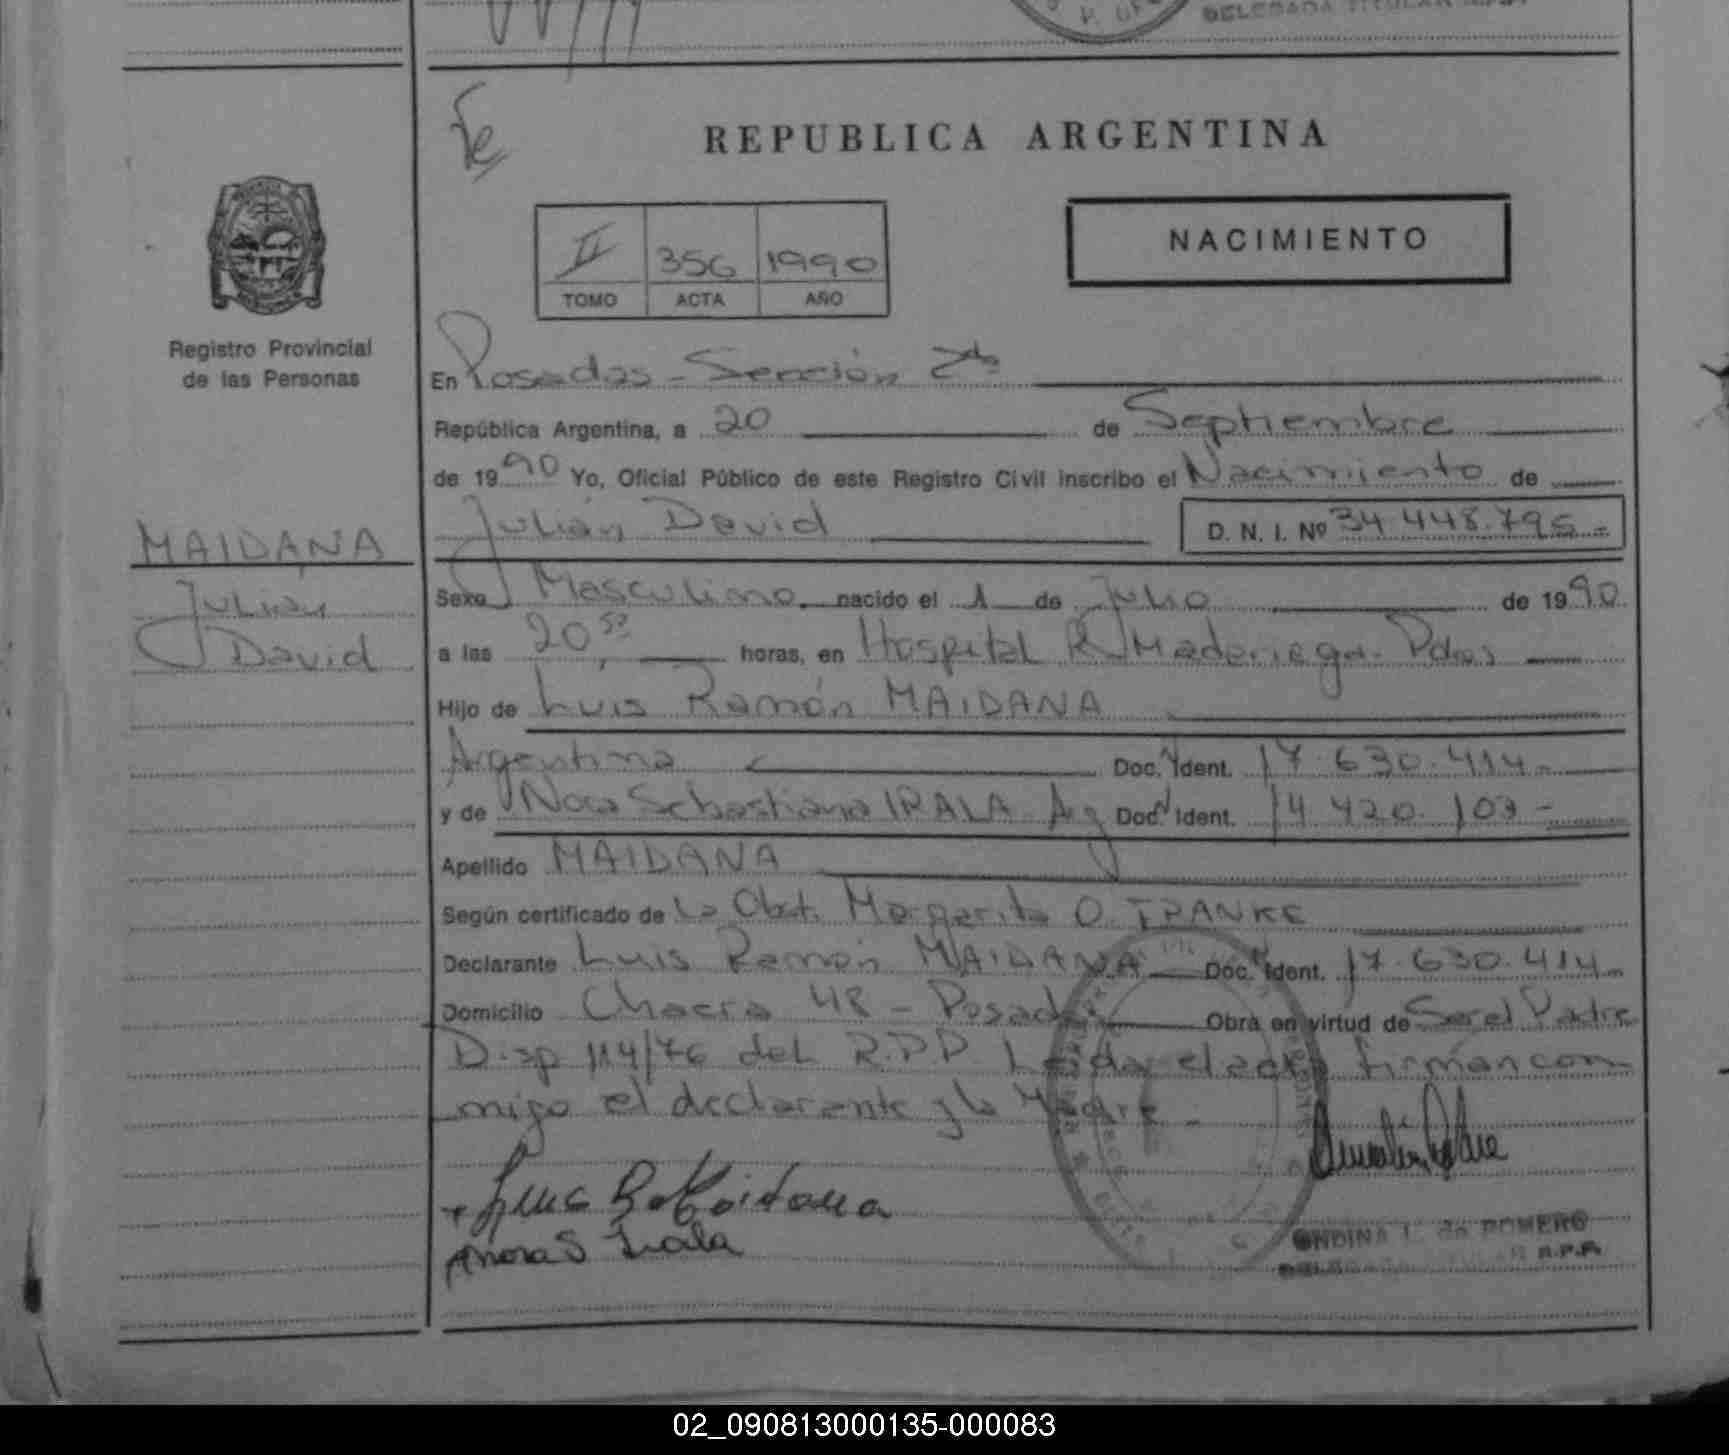 REPUBLICA ARGENTINA
NACIMIENTO
II 356 1990
TOMO ACTA AÑO
Registro Provincial
de las Personas
En Posadas - Sección 2da
República Argentina, a 20 de Septiembre
de 1990 Yo, Oficial Público de este Registro Civil inscribo el Nacimiento de
Julián David D. N. I. Nº 34.448.795.-
MAIDANA
Julián
David
Sexo Masculino nacido el 1 de Julio de 1990
a las 20,50 horas, en Hospital R. Madariaga. Pdas
Hijo de Luis Ramón MAIDANA
Argentina Doc. Ident. 17.630.414.-
y de Nora Sebastiana IRALA Arg Doc. Ident. 14.420.103-
Apellido MAIDANA
Según certificado de la Obst. Margarita O. FRANKE
Declarante Luis Ramón MAIDANA Doc. Ident. 17.630.414-
Domicilio Chacra 48 - Posadas Obra en virtud de Ser el Padre
Disp 114/76 del R.P.P. Leida el acta firman con
migo el declarante y la Madre -
Luis R. Maidana
Nora S Irala
ONDINA de ROMERO
DELEGADA TITULAR R.P.P.
02_090813000135-000083